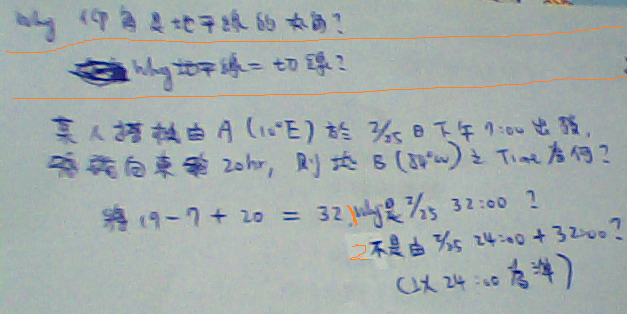 Why 仰角是地平線的夾角?
Why地平線=切線?
某人搭機由A(10°E)於2/25日下午7:00出發,
向東 20hr, 則地B(84°W)之Time為何?
19-7+20=32, Why是2/25 32:00?
不是由2/25 24:00+32:00?
(以24:00為準)